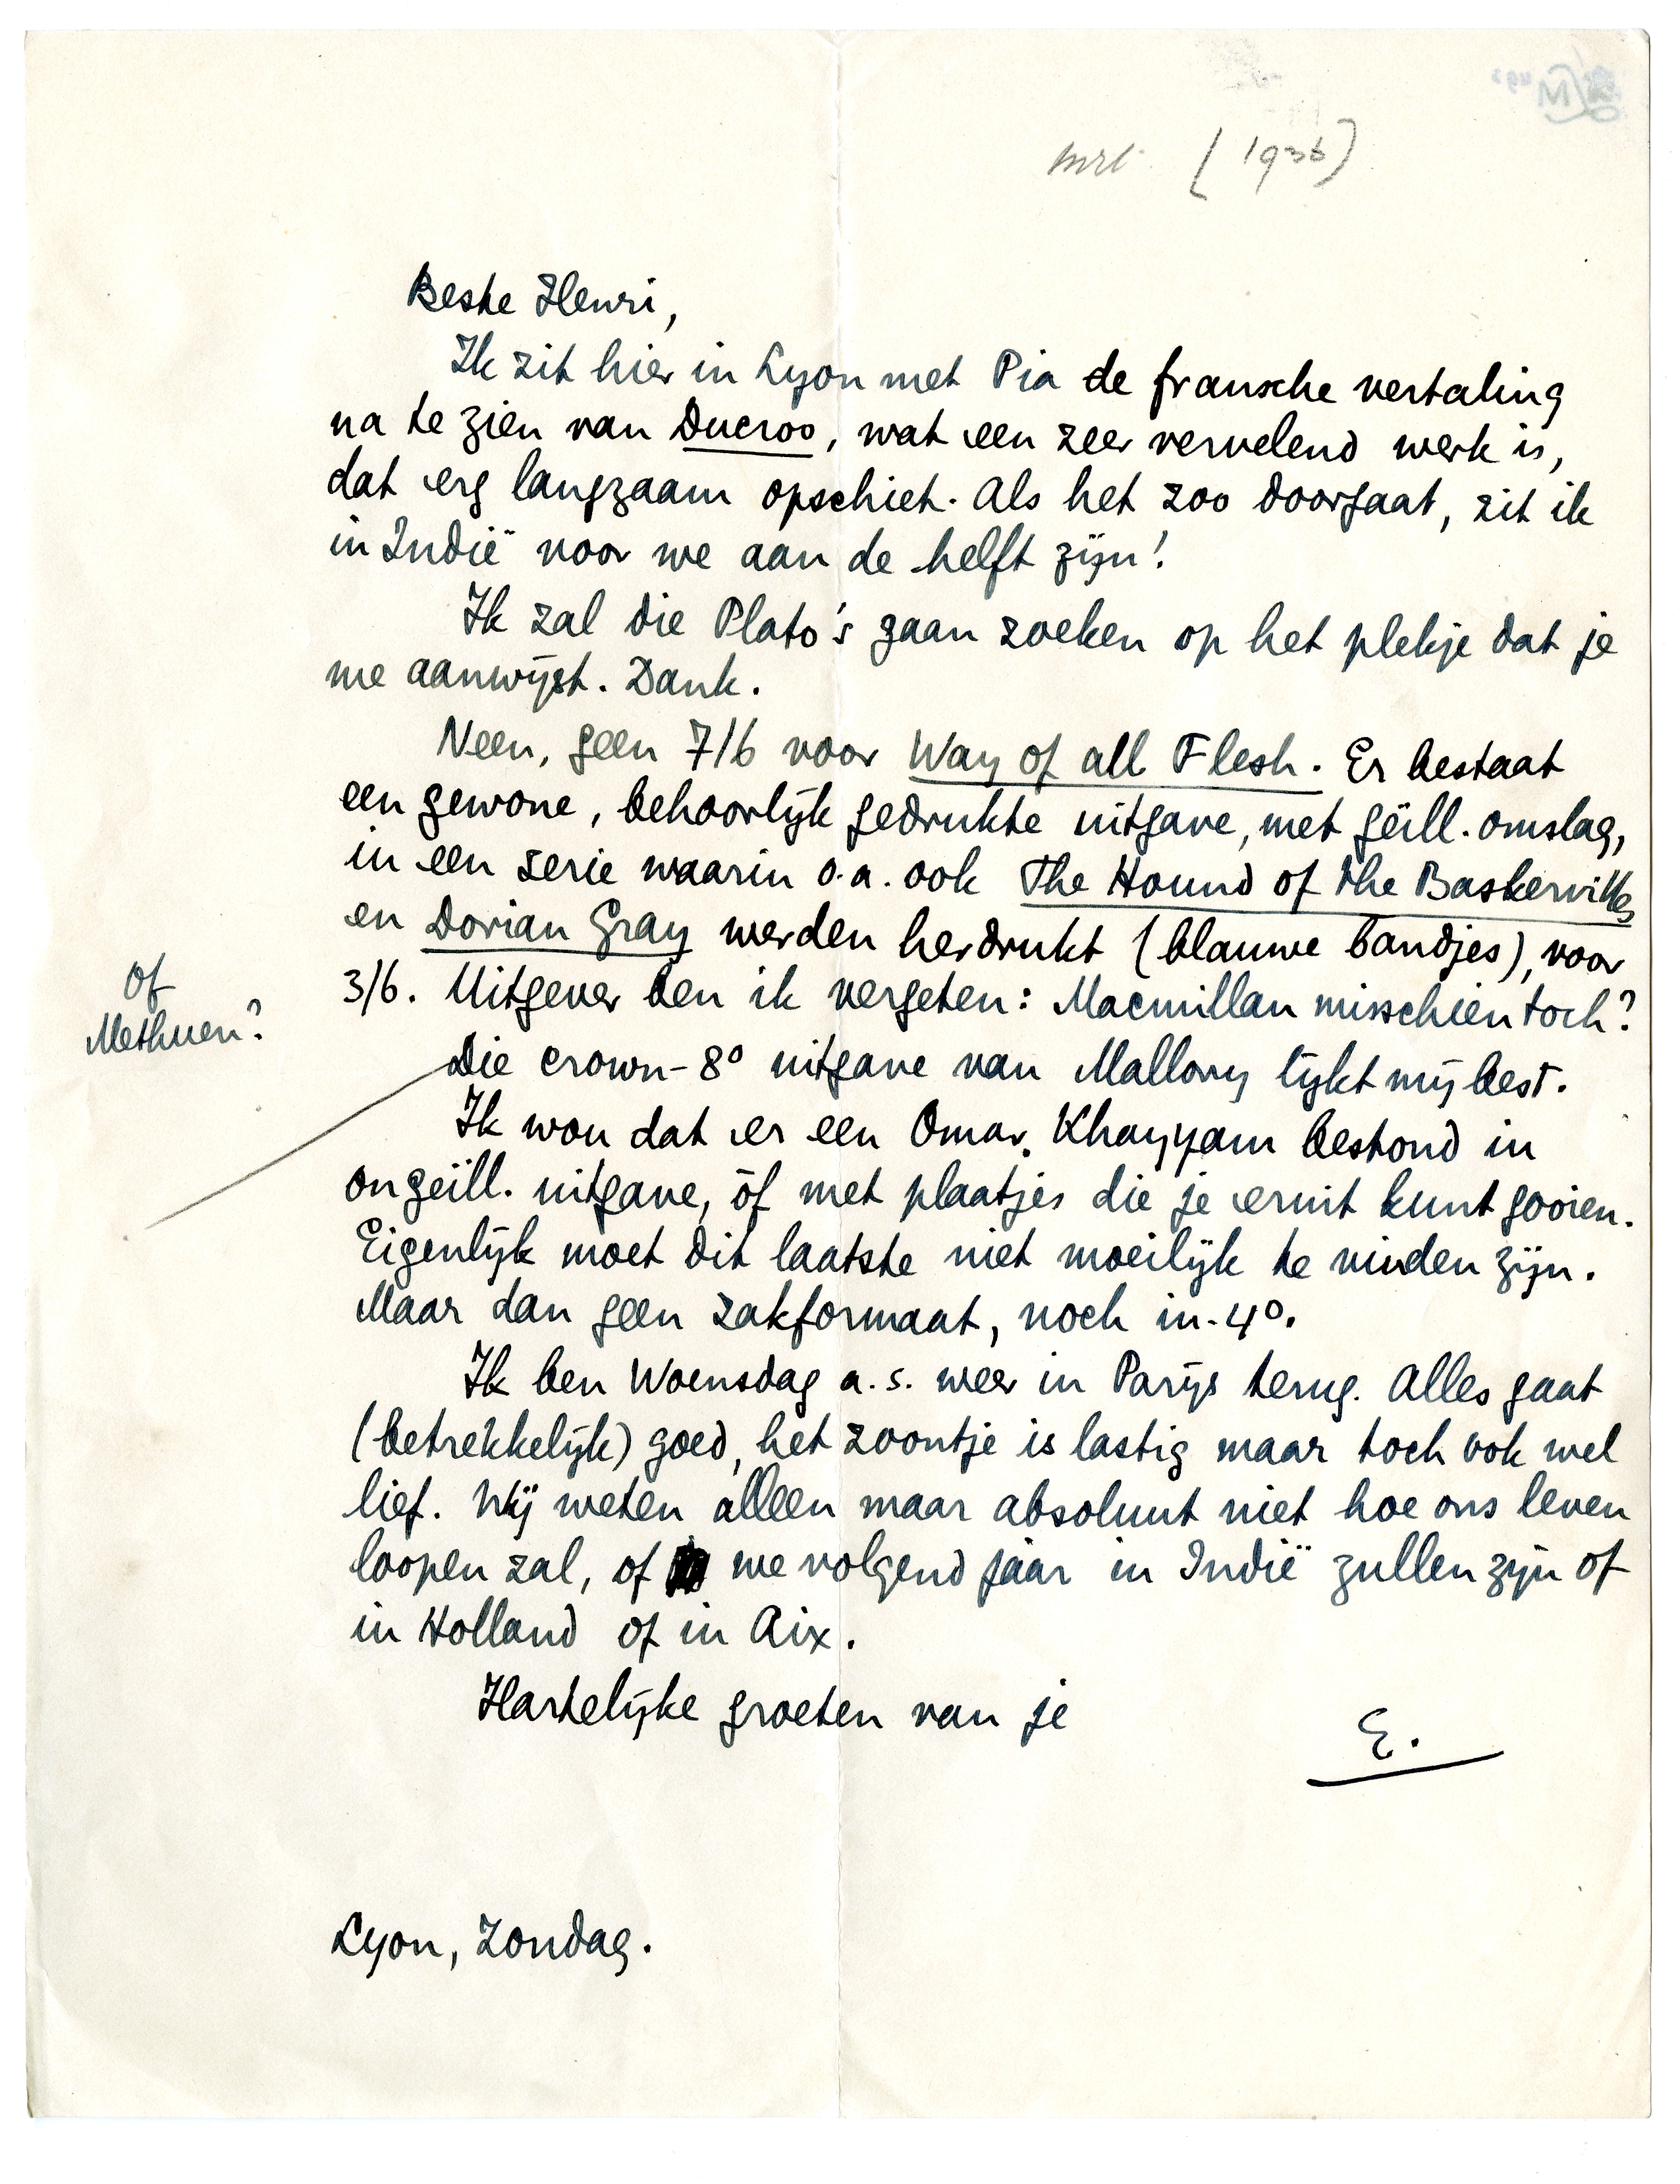 mrt. [1936]
Beste Henri,
Ik zit hier in Lyon met Pia de fransche vertaling
na te zien van Ducroo, wat een zeer vervelend werk is,
dat erg langzaam opschiet. Als het zoo doorgaat, zit ik
in Indië voor we aan de helft zijn!
Ik zal die Plato's gaan zoeken op het plekje dat je
me aanwijst. Dank.
Neen, geen 7/6 voor Way of all Flesh. Er bestaat
een gewone, behoorlijk gedrukte uitgave, met geïll. omslag,
in een serie waarin o.a. ook The Hound of the Baskervilles
en Dorian Gray werden herdrukt (blauwe bandjes), voor
3/6. Uitgever ben ik vergeten: Macmillan misschien toch?
of
Methuen?
Die crown-8° uitgave van Mallory lijkt mij best.
Ik wou dat er een Omar Khayyam bestond in
ongeïll. uitgave, òf met plaatjes die je eruit kunt gooien.
Eigenlijk moet dit laatste niet moeilijk te vinden zijn.
Maar dan geen zakformaat, noch in-4°.
Ik ben Woensdag a.s. weer in Parijs terug. Alles gaat
(betrekkelijk) goed, het zoontje is lastig maar toch ook wel
lief. Wij weten alleen maar absoluut niet hoe ons leven
loopen zal, of we volgend jaar in Indië zullen zijn of
in Holland of in Aix.
Hartelijke groeten van je
E.
Lyon, Zondag.